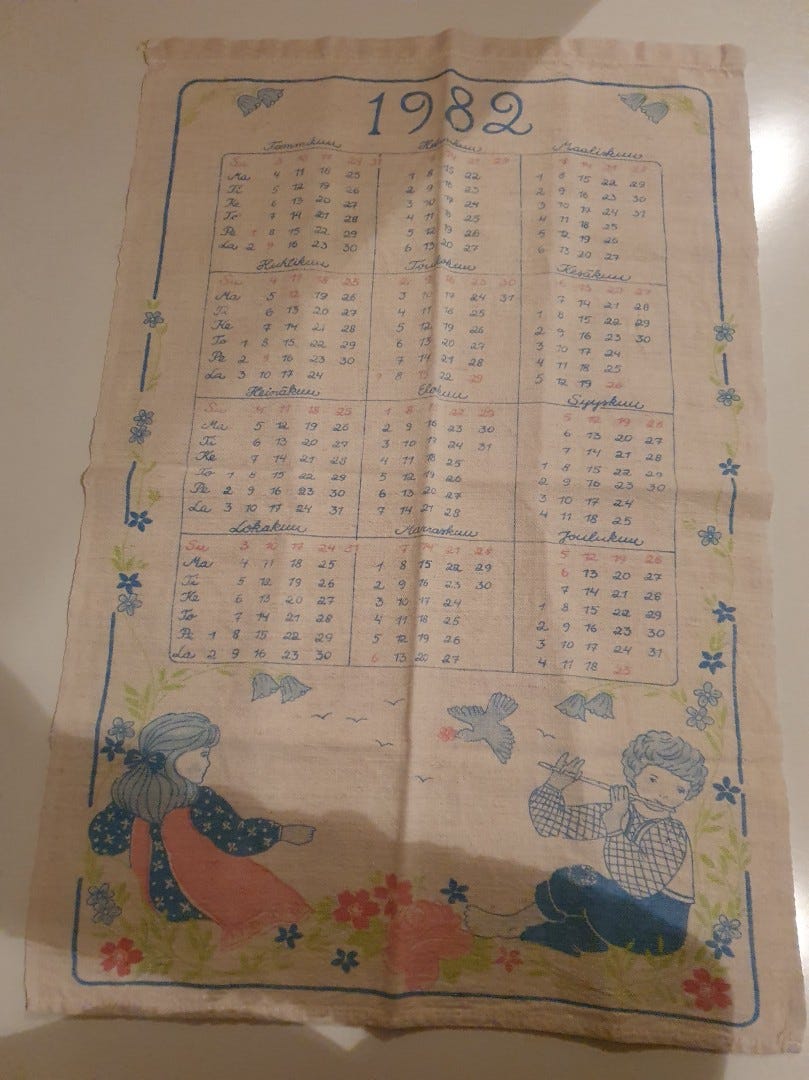 1982
Tammikuu
Su 3 10 17 24 31
Ma 4 11 18 25
Ti 5 12 19 26
Ke 6 13 20 27
To 7 14 21 28
Pe 1 8 15 22 29
La 2 9 16 23 30
Helmikuu
7 14 21 28
1 8 15 22
2 9 16 23
3 10 17 24
4 11 18 25
5 12 19 26
6 13 20 27
Maaliskuu
7 14 21 28
1 8 15 22 29
2 9 16 23 30
3 10 17 24 31
4 11 18 25
5 12 19 26
6 13 20 27
Huhtikuu
Su 4 11 18 25
Ma 5 12 19 26
Ti 6 13 20 27
Ke 7 14 21 28
To 1 8 15 22 29
Pe 2 9 16 23 30
La 3 10 17 24
Toukokuu
2 9 16 23 30
3 10 17 24 31
4 11 18 25
5 12 19 26
6 13 20 27
7 14 21 28
1 8 15 22 29
Kesäkuu
6 13 20 27
7 14 21 28
1 8 15 22 29
2 9 16 23 30
3 10 17 24
4 11 18 25
5 12 19 26
Heinäkuu
Su 4 11 18 25
Ma 5 12 19 26
Ti 6 13 20 27
Ke 7 14 21 28
To 1 8 15 22 29
Pe 2 9 16 23 30
La 3 10 17 24 31
Elokuu
1 8 15 22 29
2 9 16 23 30
3 10 17 24 31
4 11 18 25
5 12 19 26
6 13 20 27
7 14 21 28
Syyskuu
5 12 19 26
6 13 20 27
7 14 21 28
1 8 15 22 29
2 9 16 23 30
3 10 17 24
4 11 18 25
Lokakuu
Su 3 10 17 24 31
Ma 4 11 18 25
Ti 5 12 19 26
Ke 6 13 20 27
To 7 14 21 28
Pe 1 8 15 22 29
La 2 9 16 23 30
Marraskuu
7 14 21 28
1 8 15 22 29
2 9 16 23 30
3 10 17 24
4 11 18 25
5 12 19 26
6 13 20 27
Joulukuu
5 12 19 26
6 13 20 27
7 14 21 28
1 8 15 22 29
2 9 16 23 30
3 10 17 24 31
4 11 18 25